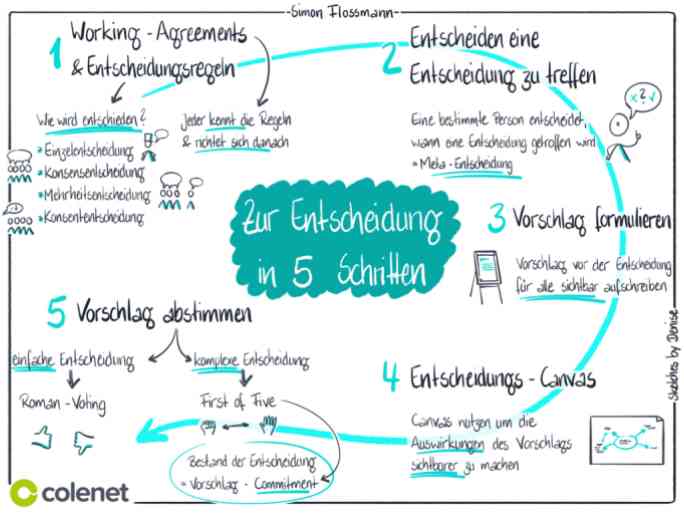 -Simon Flossmann-
1 Working - Agreements
& Entscheidungsregeln
Wie wird entschieden?
Einzelentscheidung
Konsensentscheidung
Mehrheitsentscheidung
Konsententscheidung
Jeder kennt die Regeln
& richtet sich danach
2 Entscheiden eine
Entscheidung zu treffen
Eine bestimmte Person entscheidet,
wann eine Entscheidung getroffen wird
Meta - Entscheidung
x ? ✓
Zur Entscheidung
in 5 Schritten
3 Vorschlag formulieren
Vorschlag vor der Entscheidung
für alle sichtbar aufschreiben
4 Entscheidungs - Canvas
Canvas nutzen um die
Auswirkungen des Vorschlags
sichtbarer zu machen
5 Vorschlag abstimmen
einfache Entscheidung
Roman - Voting
komplexe Entscheidung
First of Five
Bestand der Entscheidung
Vorschlag - Commitment
Sketches by Denise
colenet